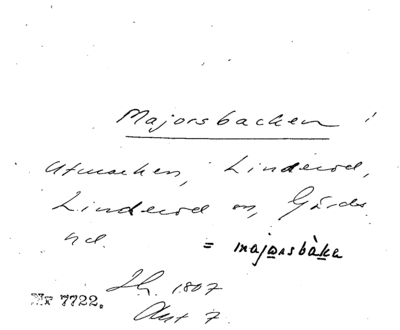 Majorsbacken
Utmarken, Linderöd,
Linderöd sn, Gärds
hd.
= majorsbàka
Sk. 1807
Akt 7.
Nr 7722.